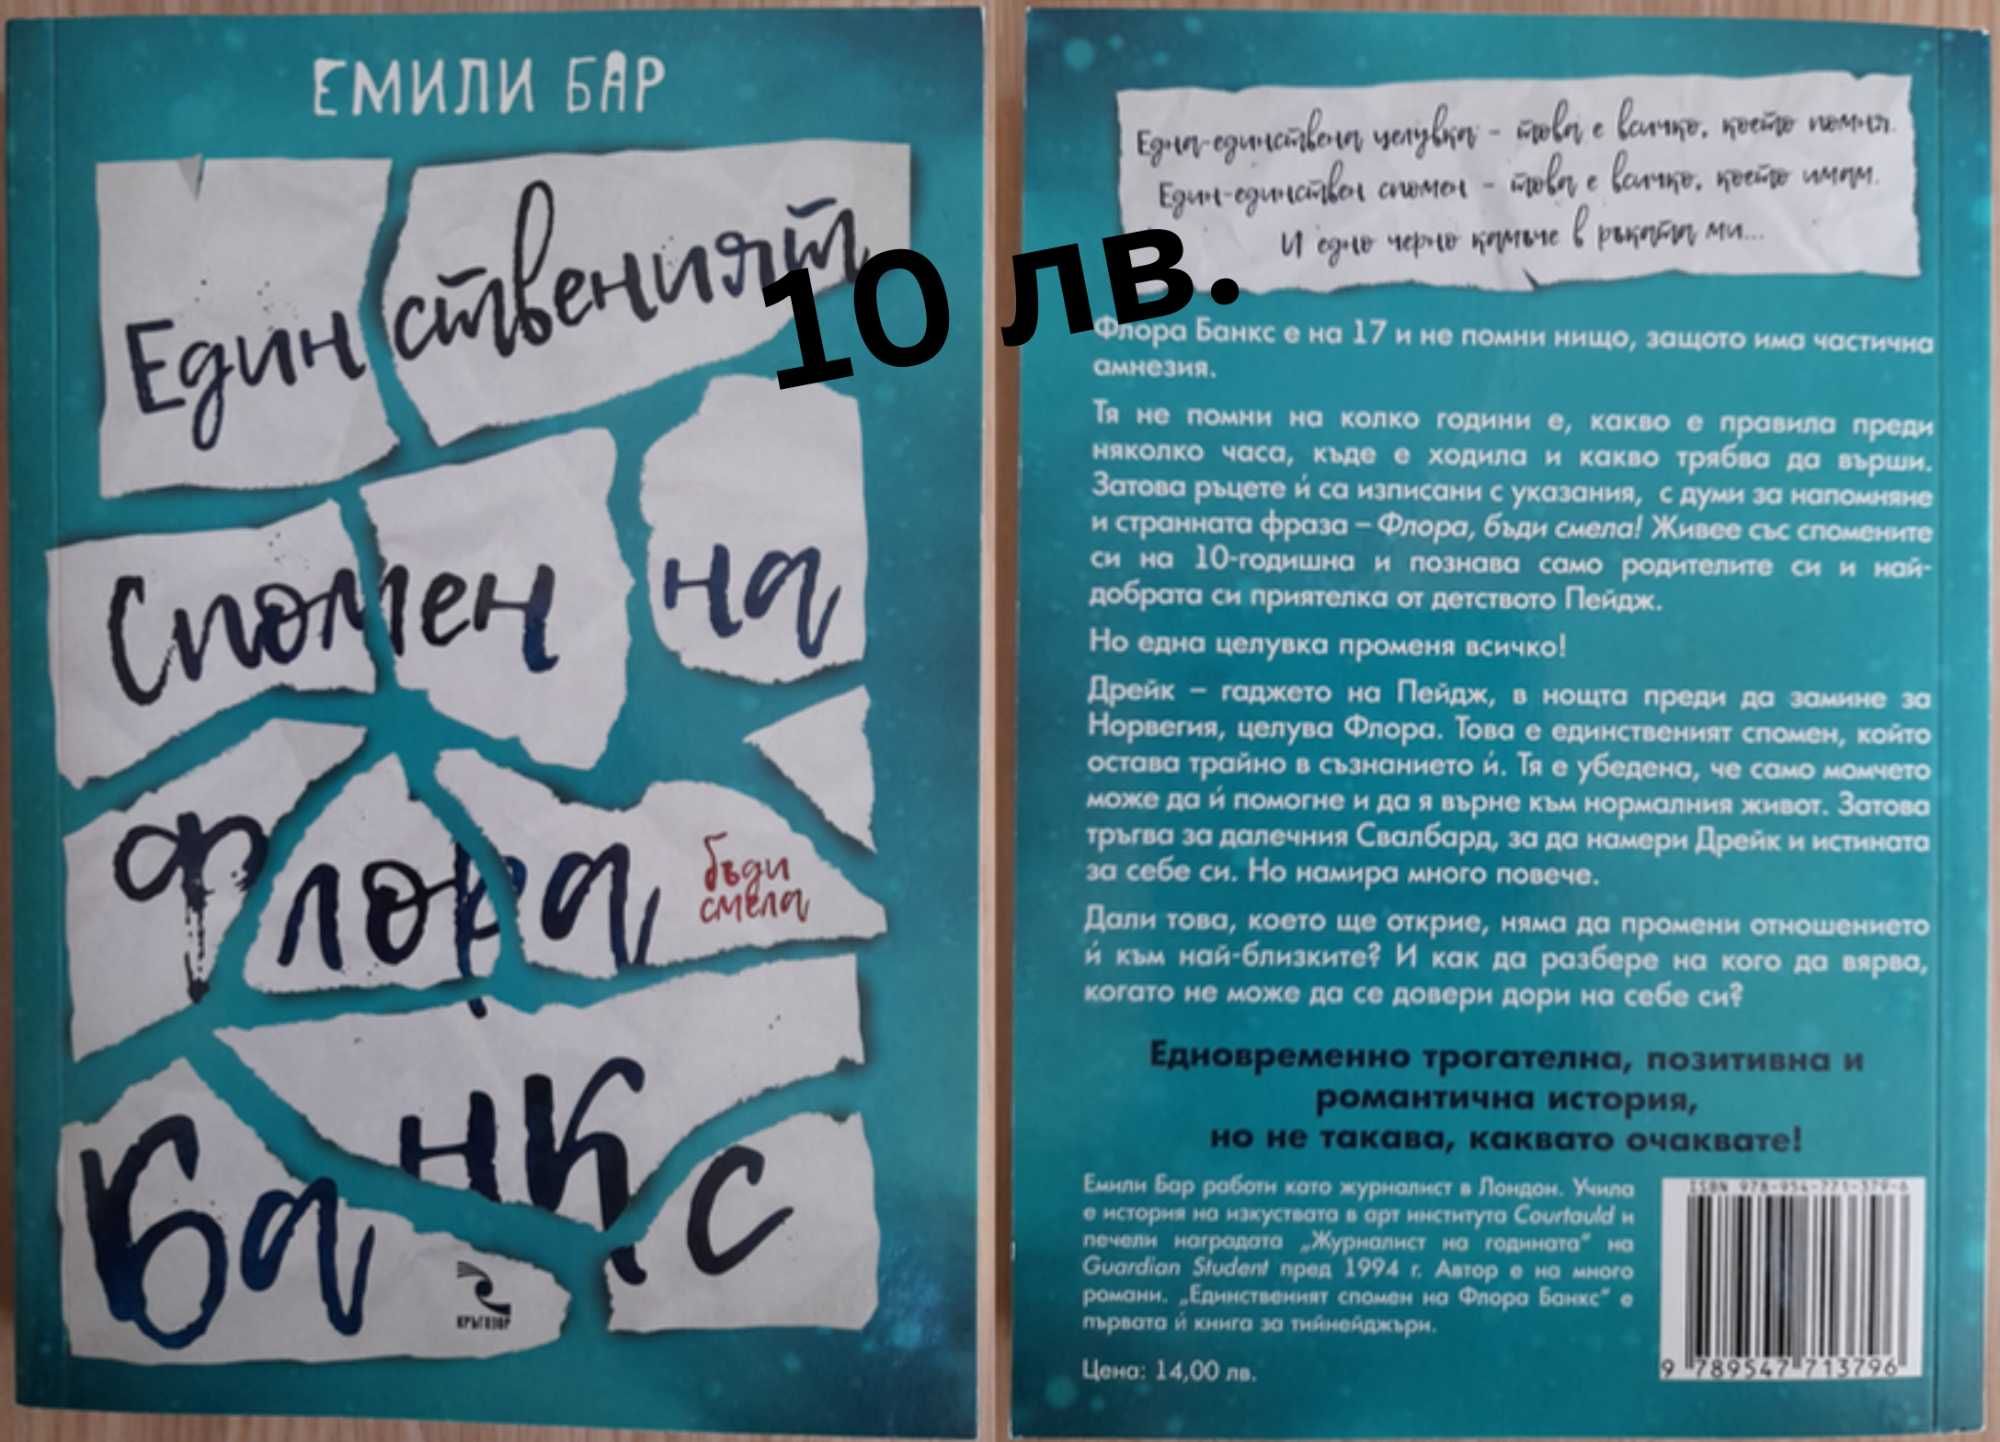 ЕМИЛИ БАР
Единственият
Спомен на
Флора
бъди
смела
Банкс
КРЪГОЗОР
10 лв.
Една-единствена целувка – това е всичко, което помня.
Един-единствен спомен – това е всичко, което имам.
И едно черно камъче в ръката ми...
Флора Банкс е на 17 и не помни нищо, защото има частична
амнезия.
Тя не помни на колко години е, какво е правила преди
няколко часа, къде е ходила и какво трябва да върши.
Затова ръцете ѝ са изписани с указания, с думи за напомняне
и странната фраза – Флора, бъди смела! Живее със спомените
си на 10-годишна и познава само родителите си и най-
добрата си приятелка от детството Пейдж.
Но една целувка променя всичко!
Дрейк – гаджето на Пейдж, в нощта преди да замине за
Норвегия, целува Флора. Това е единственият спомен, който
остава трайно в съзнанието ѝ. Тя е убедена, че само момчето
може да ѝ помогне и да я върне към нормалния живот. Затова
тръгва за далечния Свалбард, за да намери Дрейк и истината
за себе си. Но намира много повече.
Дали това, което ще открие, няма да промени отношението
ѝ към най-близките? И как да разбере на кого да вярва,
когато не може да се довери дори на себе си?
Едновременно трогателна, позитивна и
романтична история,
но не такава, каквато очаквате!
Емили Бар работи като журналист в Лондон. Учила
е история на изкуствата в арт института Courtauld и
печели наградата „Журналист на годината“ на
Guardian Student пред 1994 г. Автор е на много
романи. „Единственият спомен на Флора Банкс“ е
първата ѝ книга за тийнейджъри.
Цена: 14,00 лв.
ISBN 978-954-771-379-6
9 789547 713796